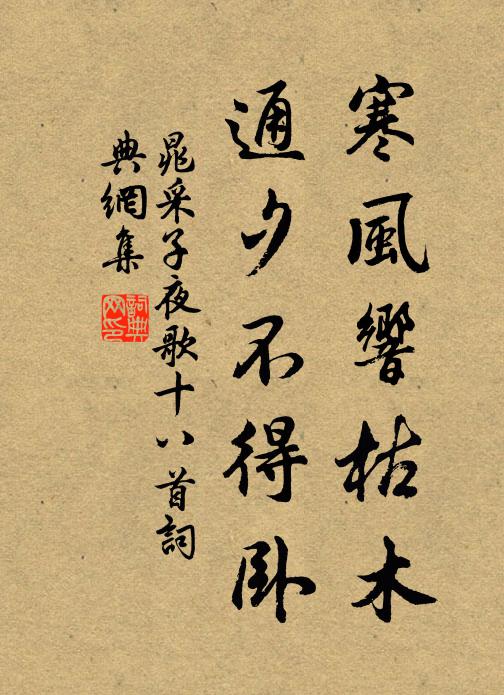 寒風響枯木
通夕不得臥
晁采子夜歌十八首詞
典網集
詞典
网印